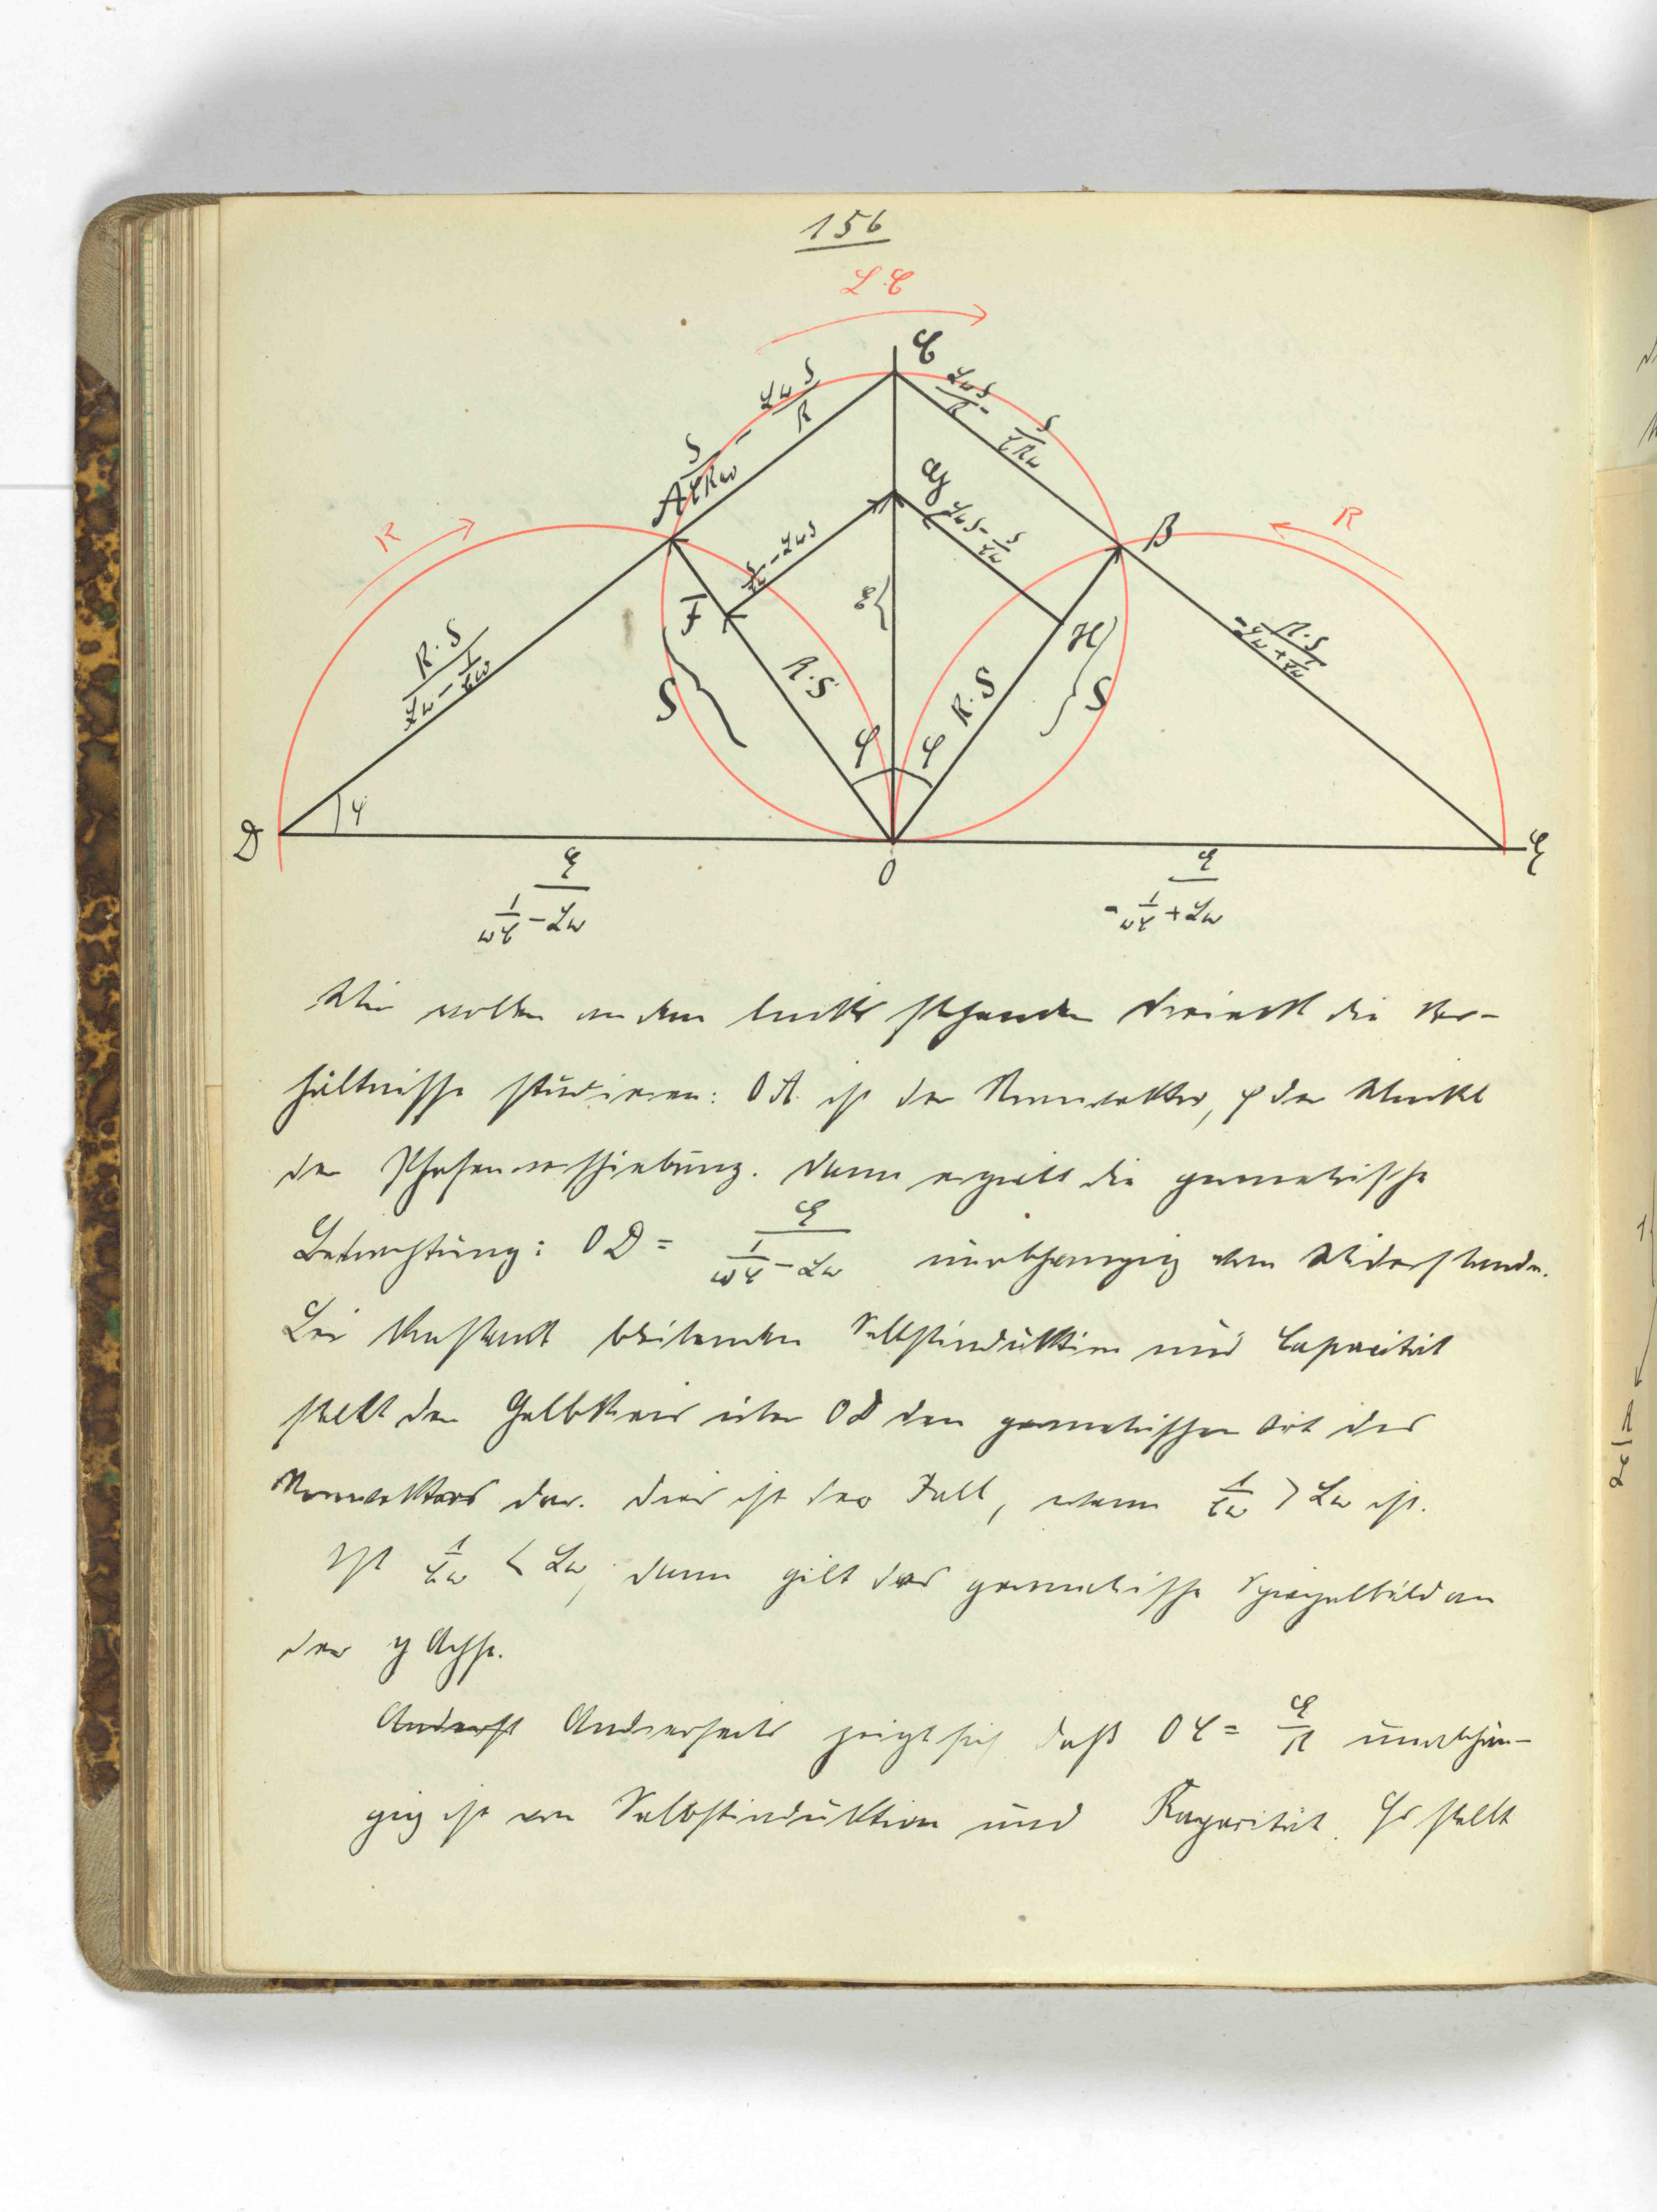 156
L C
C
Lω S / R
S / CRω - LωS / R
LωS / R - S / CRω
A
G
B
R
R
S / Cω - LωS
LωS - S / Cω
E
F
H
R·S / (Lω - 1/Cω)
R·S
R·S
R·S / (-Lω + 1/Cω)
S
S
φ φ
D
φ
O
E
E / (1/ωC - Lω)
E / (-1/ωC + Lω)
Wir wollen an dem links stehenden Dreieck die Ver-
hältnisse studieren: OA ist der Stromvektor, φ der Winkel
der Phasenverschiebung. Dann ergiebt die geometrische
Betrachtung: OD = E / (1/ωC - Lω) unabhängig vom Widerstande.
Bei konstant bleibender Selbstinduktion und Capacität
stellt der Halbkreis über OD den geometrischen Ort des
Stromvektors dar. Dies ist der Fall, wenn 1/Cω > Lω ist.
Ist 1/Cω < Lω, dann gilt das geometrische Spiegelbild an
der y Achse.
Anderst Anderseits zeigt sich daß OC = E/R unabhän-
gig ist von Selbstinduktion und Kapacität. Es stellt